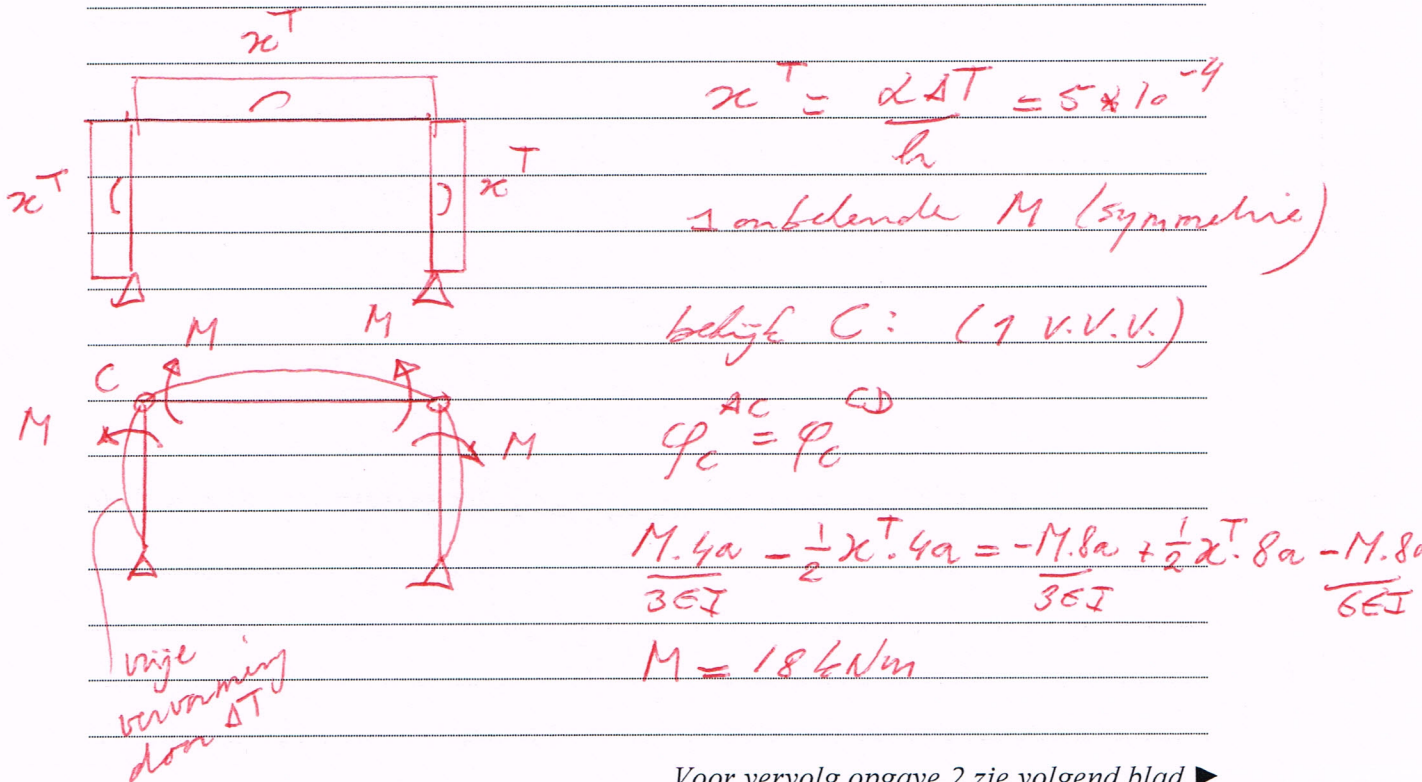 ϰᵀ
ϰᵀ = αΔT / h = 5 * 10⁻⁴
ϰᵀ ϰᵀ
1 onbekende M (symmetrie)
M M
bekijk C: (1 v.v.v.)
C
M M
φ_C^AC = φ_C^CD
M.4a/3EI - ½ϰᵀ.4a = -M.8a/3EI + ½ϰᵀ.8a - M.8a/6EI
M = 18 kNm
vrije
vervorming
door ΔT
Voor vervolg opgave 2 zie volgend blad ►